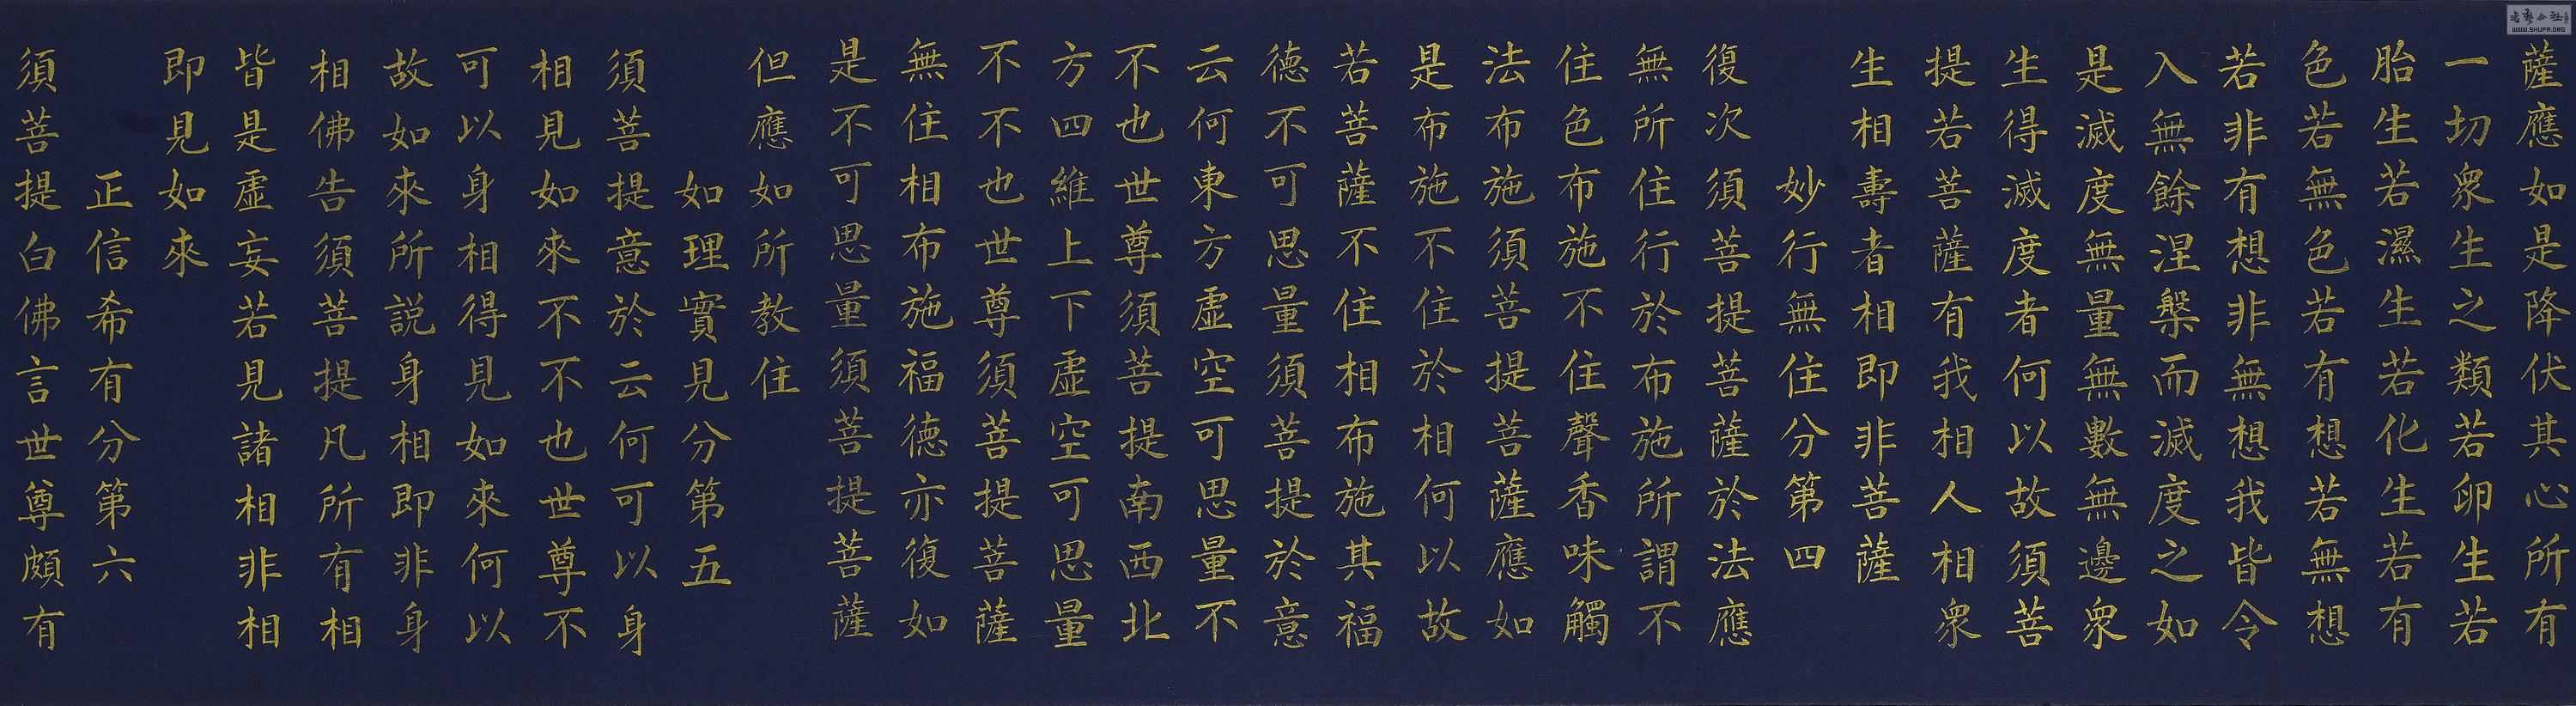 薩應如是降伏其心所有
一切眾生之類若卵生若
胎生若濕生若化生若有
色若無色若有想若無想
若非有想非無想我皆令
入無餘涅槃而滅度之如
是滅度無量無數無邊眾
生得滅度者何以故須菩
提若菩薩有我相人相眾
生相壽者相即非菩薩
妙行無住分第四
復次須菩提菩薩於法應
無所住行於布施所謂不
住色布施不住聲香味觸
法布施須菩提菩薩應如
是布施不住於相何以故
若菩薩不住相布施其福
德不可思量須菩提於意
云何東方虛空可思量不
不也世尊須菩提南西北
方四維上下虛空可思量
不不也世尊須菩提菩薩
無住相布施福德亦復如
是不可思量須菩提菩薩
但應如所教住
如理實見分第五
須菩提意於云何可以身
相見如來不不也世尊不
可以身相得見如來何以
故如來所説身相即非身
相佛告須菩提凡所有相
皆是虛妄若見諸相非相
即見如來
正信希有分第六
須菩提白佛言世尊頗有
WWW.SHUFA.ORG